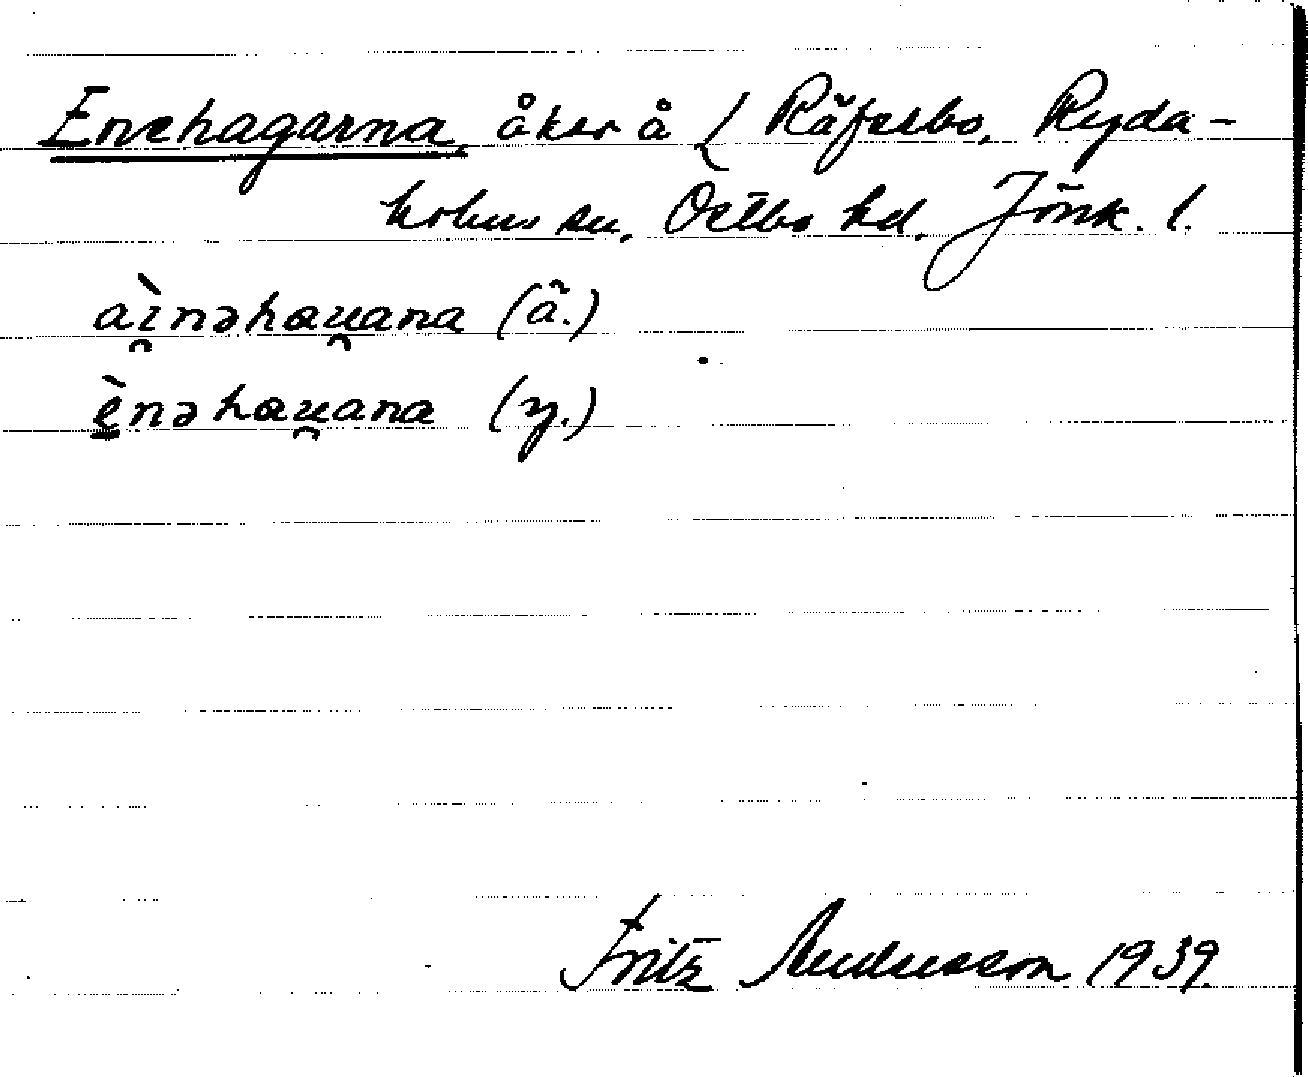 Enehagarna, åker å { Räfselbo, Ryda-
kobus sn, Östbo hd, Jönk. l.
aì̯nəhau̯ana (ä.)
ènəhau̯ana (y.)
Fritz Andersson 1939.